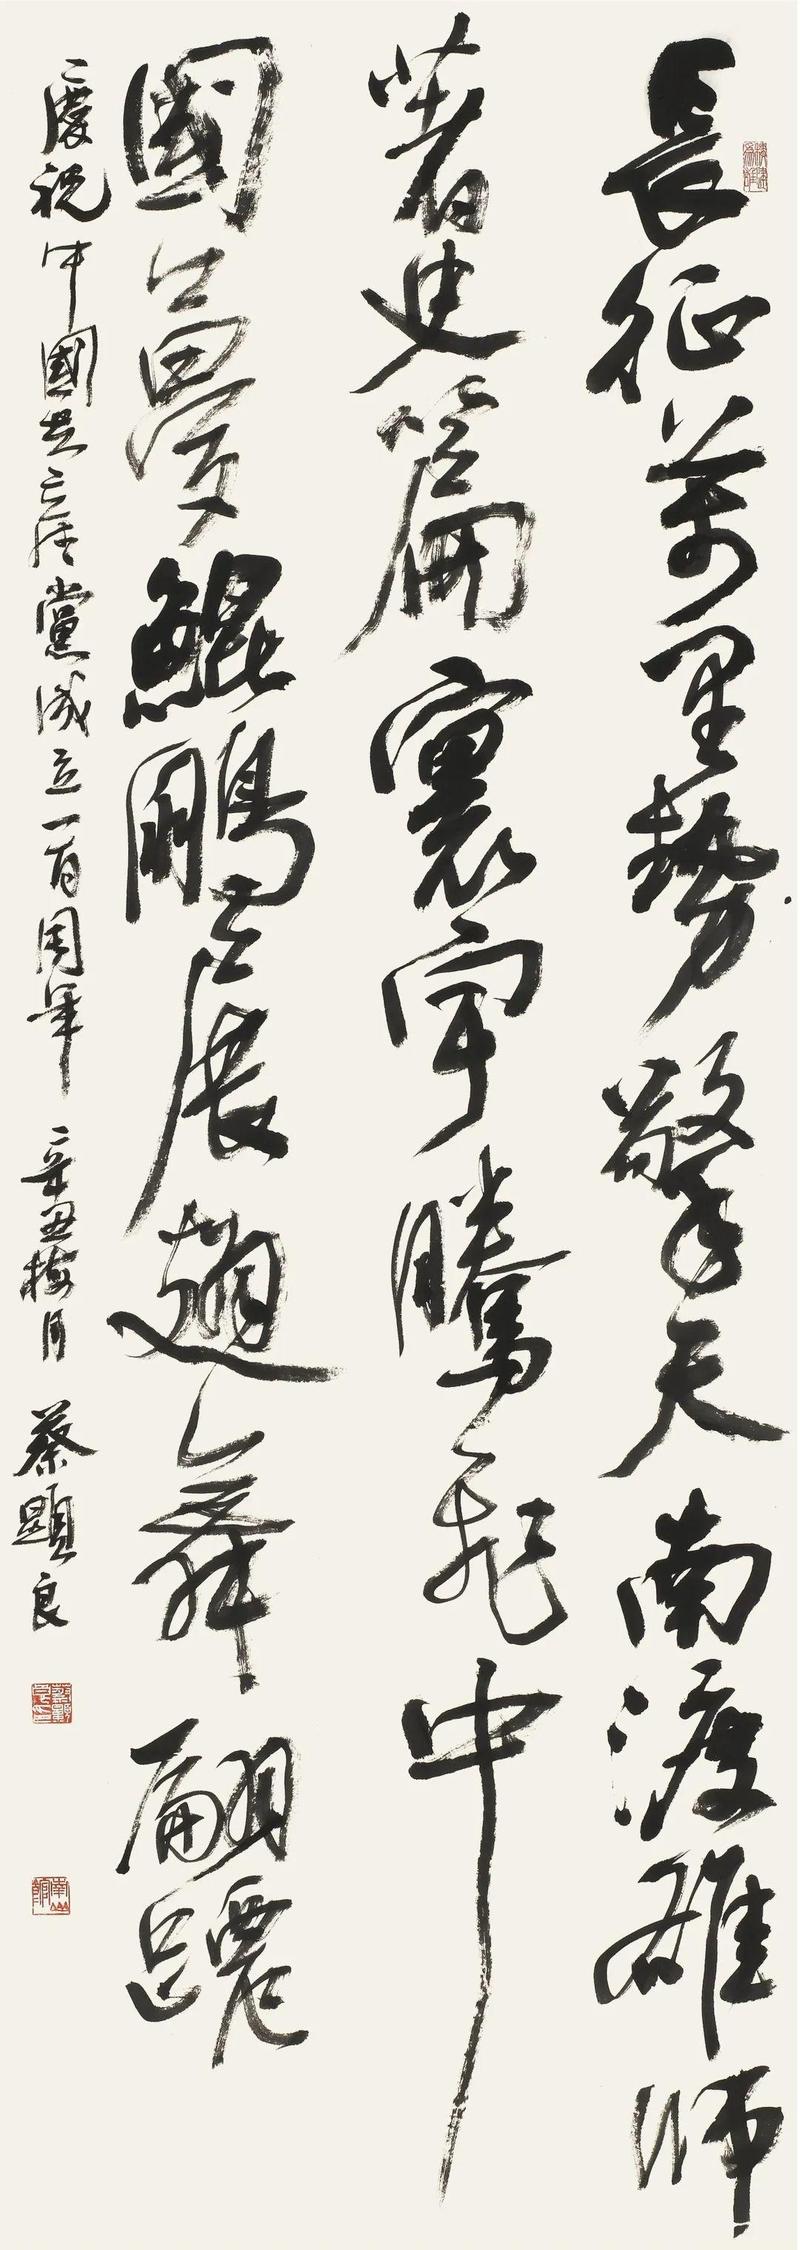 長征萬里勢擎天南渡雄師
著史篇寰宇騰飛中
國夢鯤鵬展翅舞翩躚
慶祝中國共產黨成立一百周年 辛丑梅月 蔡顯良
蔡顯良印